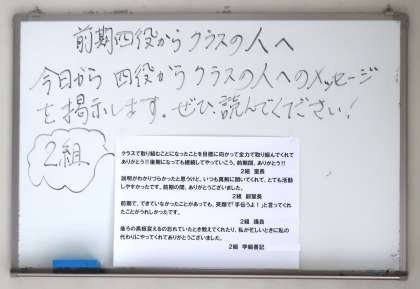 前期四役からクラスの人へ
今日から四役からクラスの人へのメッセージ
を掲示します。ぜひ読んでください！
2組
クラスで取り組むことになったことを目標に向かって全力で取り組んでくれて
ありがとう!!後期になっても継続してやっていこう。前期間、ありがとう!!
2組 室長
説明がわかりづらかったと思うけど、いつも真剣に聞いてくれて、とても活動
しやすかったです。前期の間、ありがとうございました。
2組 副室長
前期で、できていなかったことがあっても、笑顔で「手伝うよ！」と言ってくれ
たことがうれしかったです。
2組 議員
後ろの黒板変えるの忘れていたとき教えてくれたり、私が忙しいときに私の
代わりにやってくれてありがとうございました。
2組 学級書記